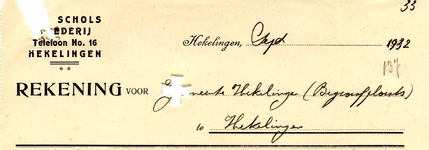 33
SCHOLS
DERIJ
Telefoon No. 16
HEKELINGEN
Hekelingen, 1932
137
REKENING VOOR Gemeente Hekelingen (Begraafplaats)
te Hekelingen